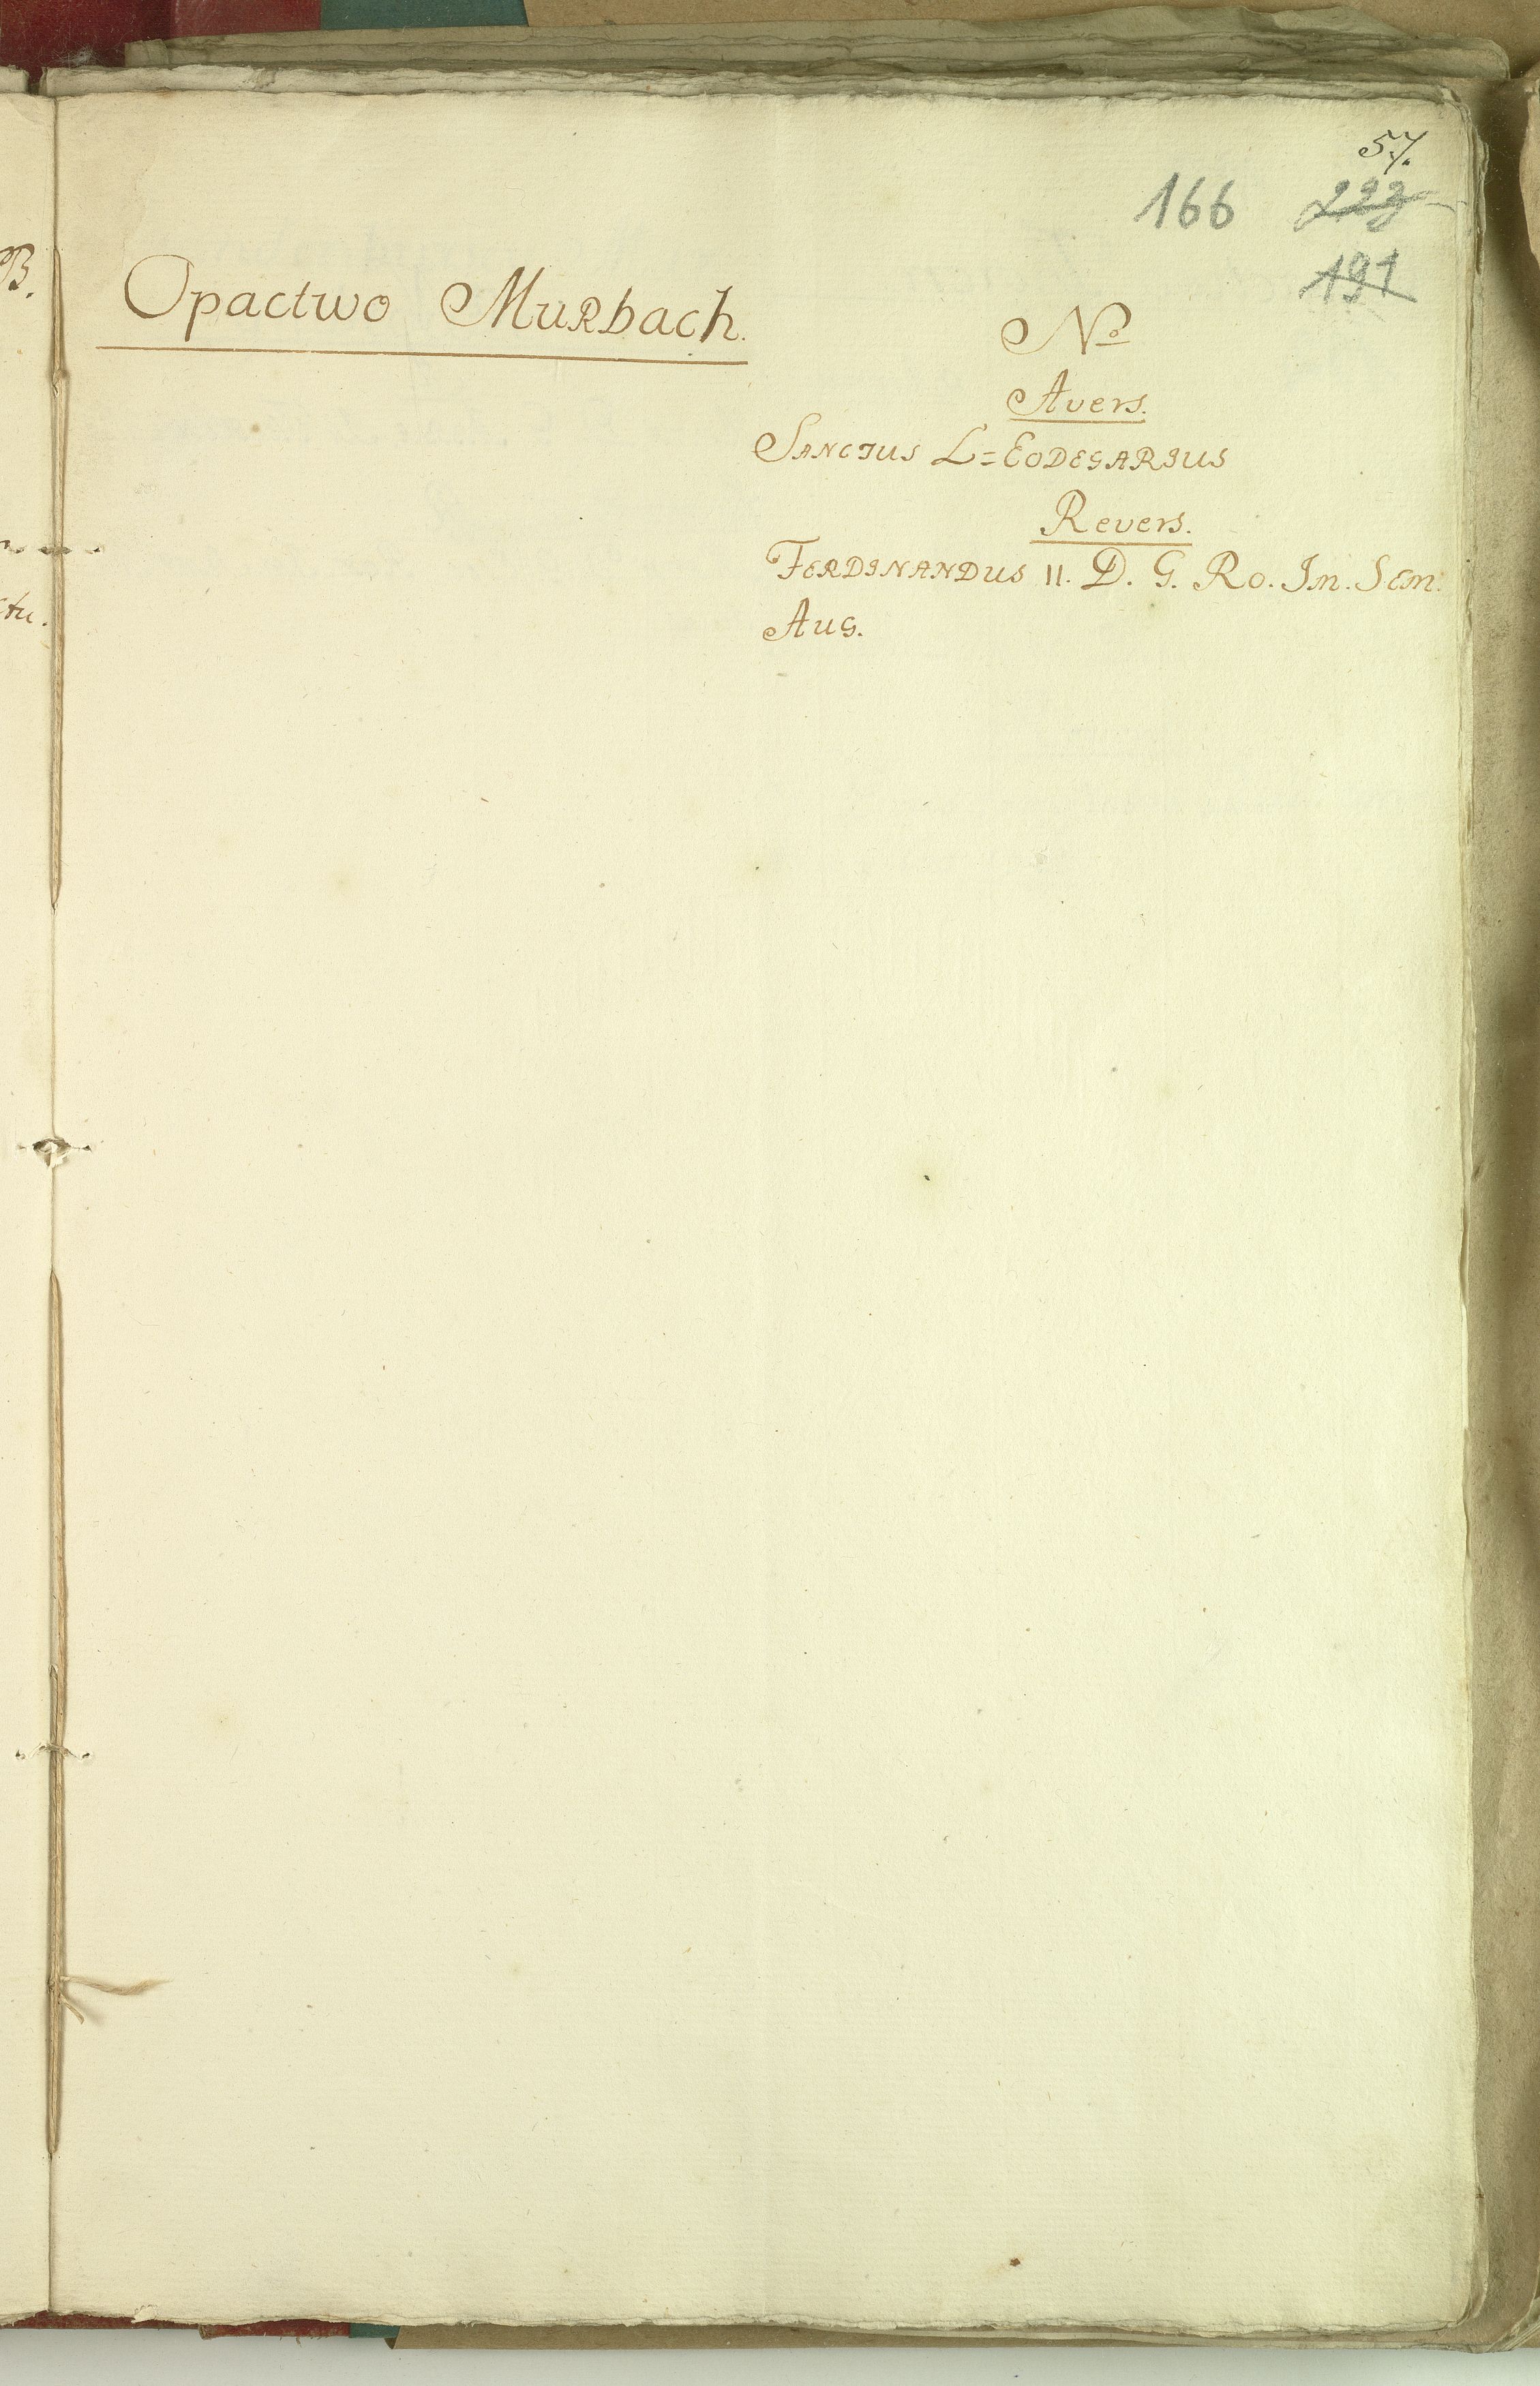 57.
166 223
191
Opactwo Murbach.
No
Avers.
Sanctus L=Eodegarius
Revers.
Ferdinandus II. D. G. Ro. Im. Sem.
Aug.
B.